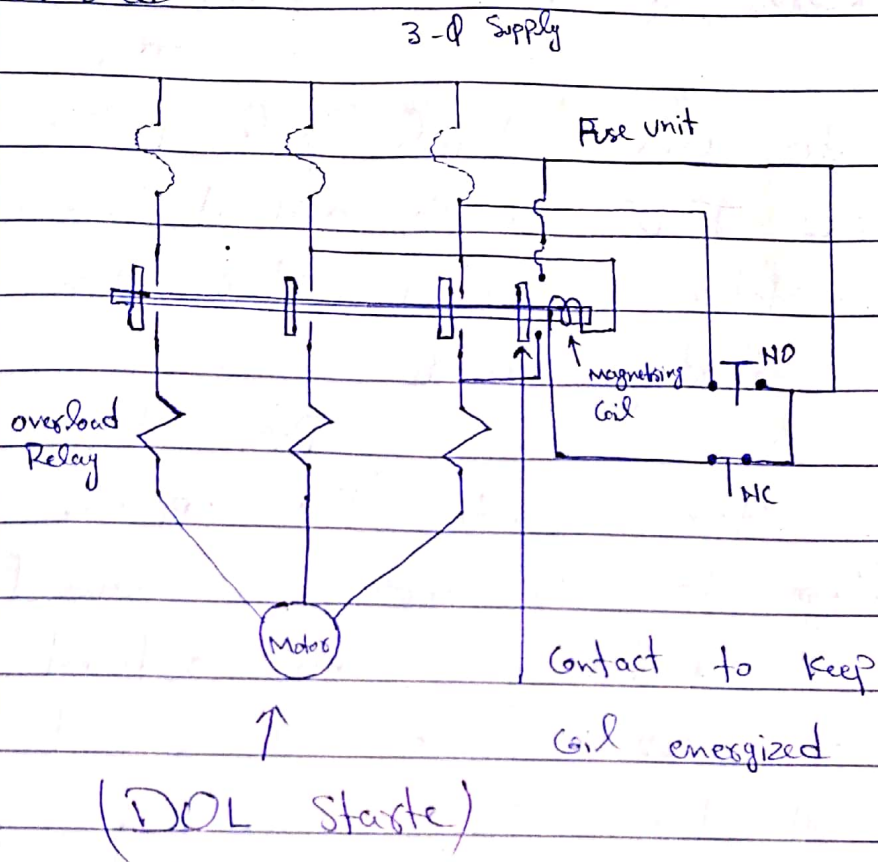 3-φ Supply
Fuse unit
NO
Magnetising
Coil
overload
Relay
NC
Motor
Contact to Keep
Coil energized
(DOL Starte)